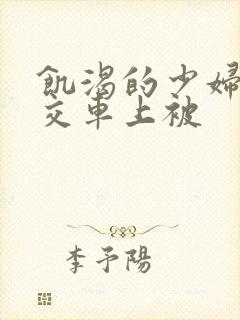 飢渴的少婦
交車上被
李予陽